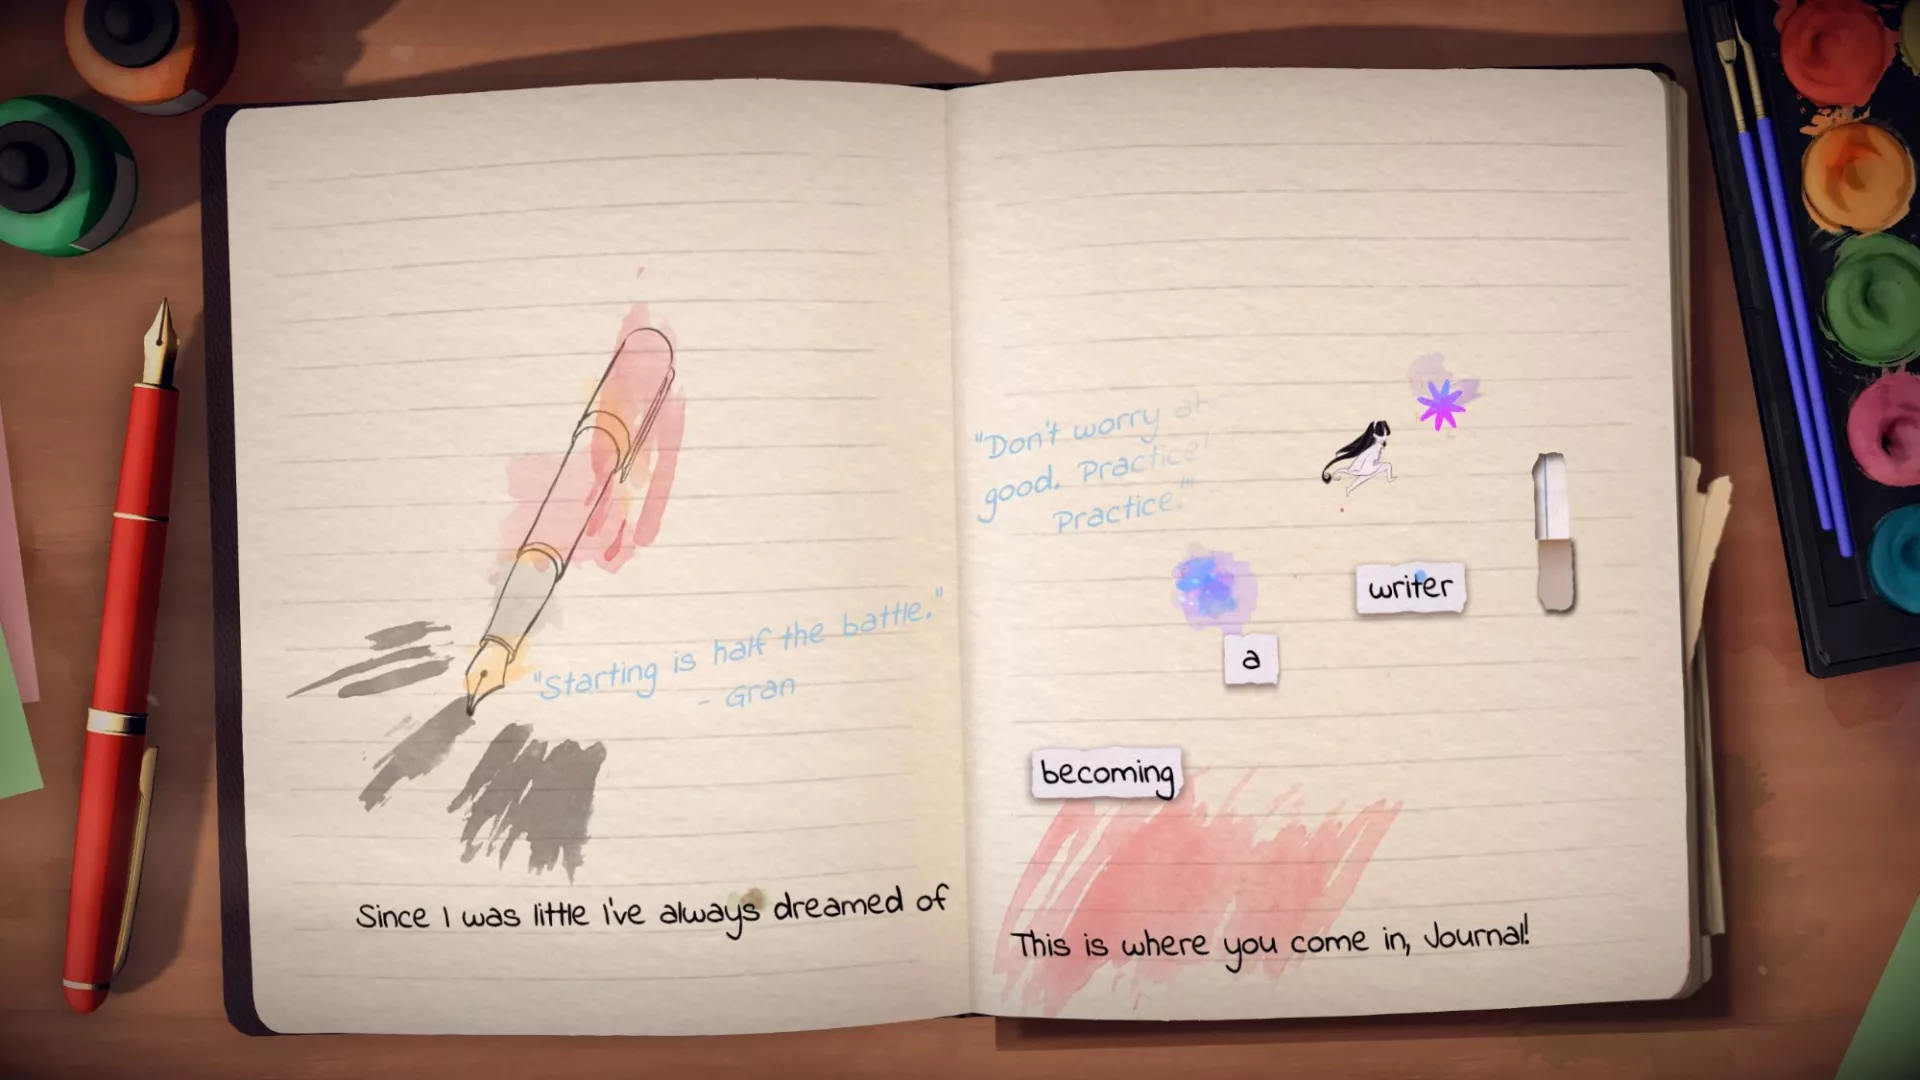 "Starting is half the battle."
- Gran
Since I was little I've always dreamed of
"Don't worry
good. Practice!
Practice."
writer
a
becoming
This is where you come in, Journal!